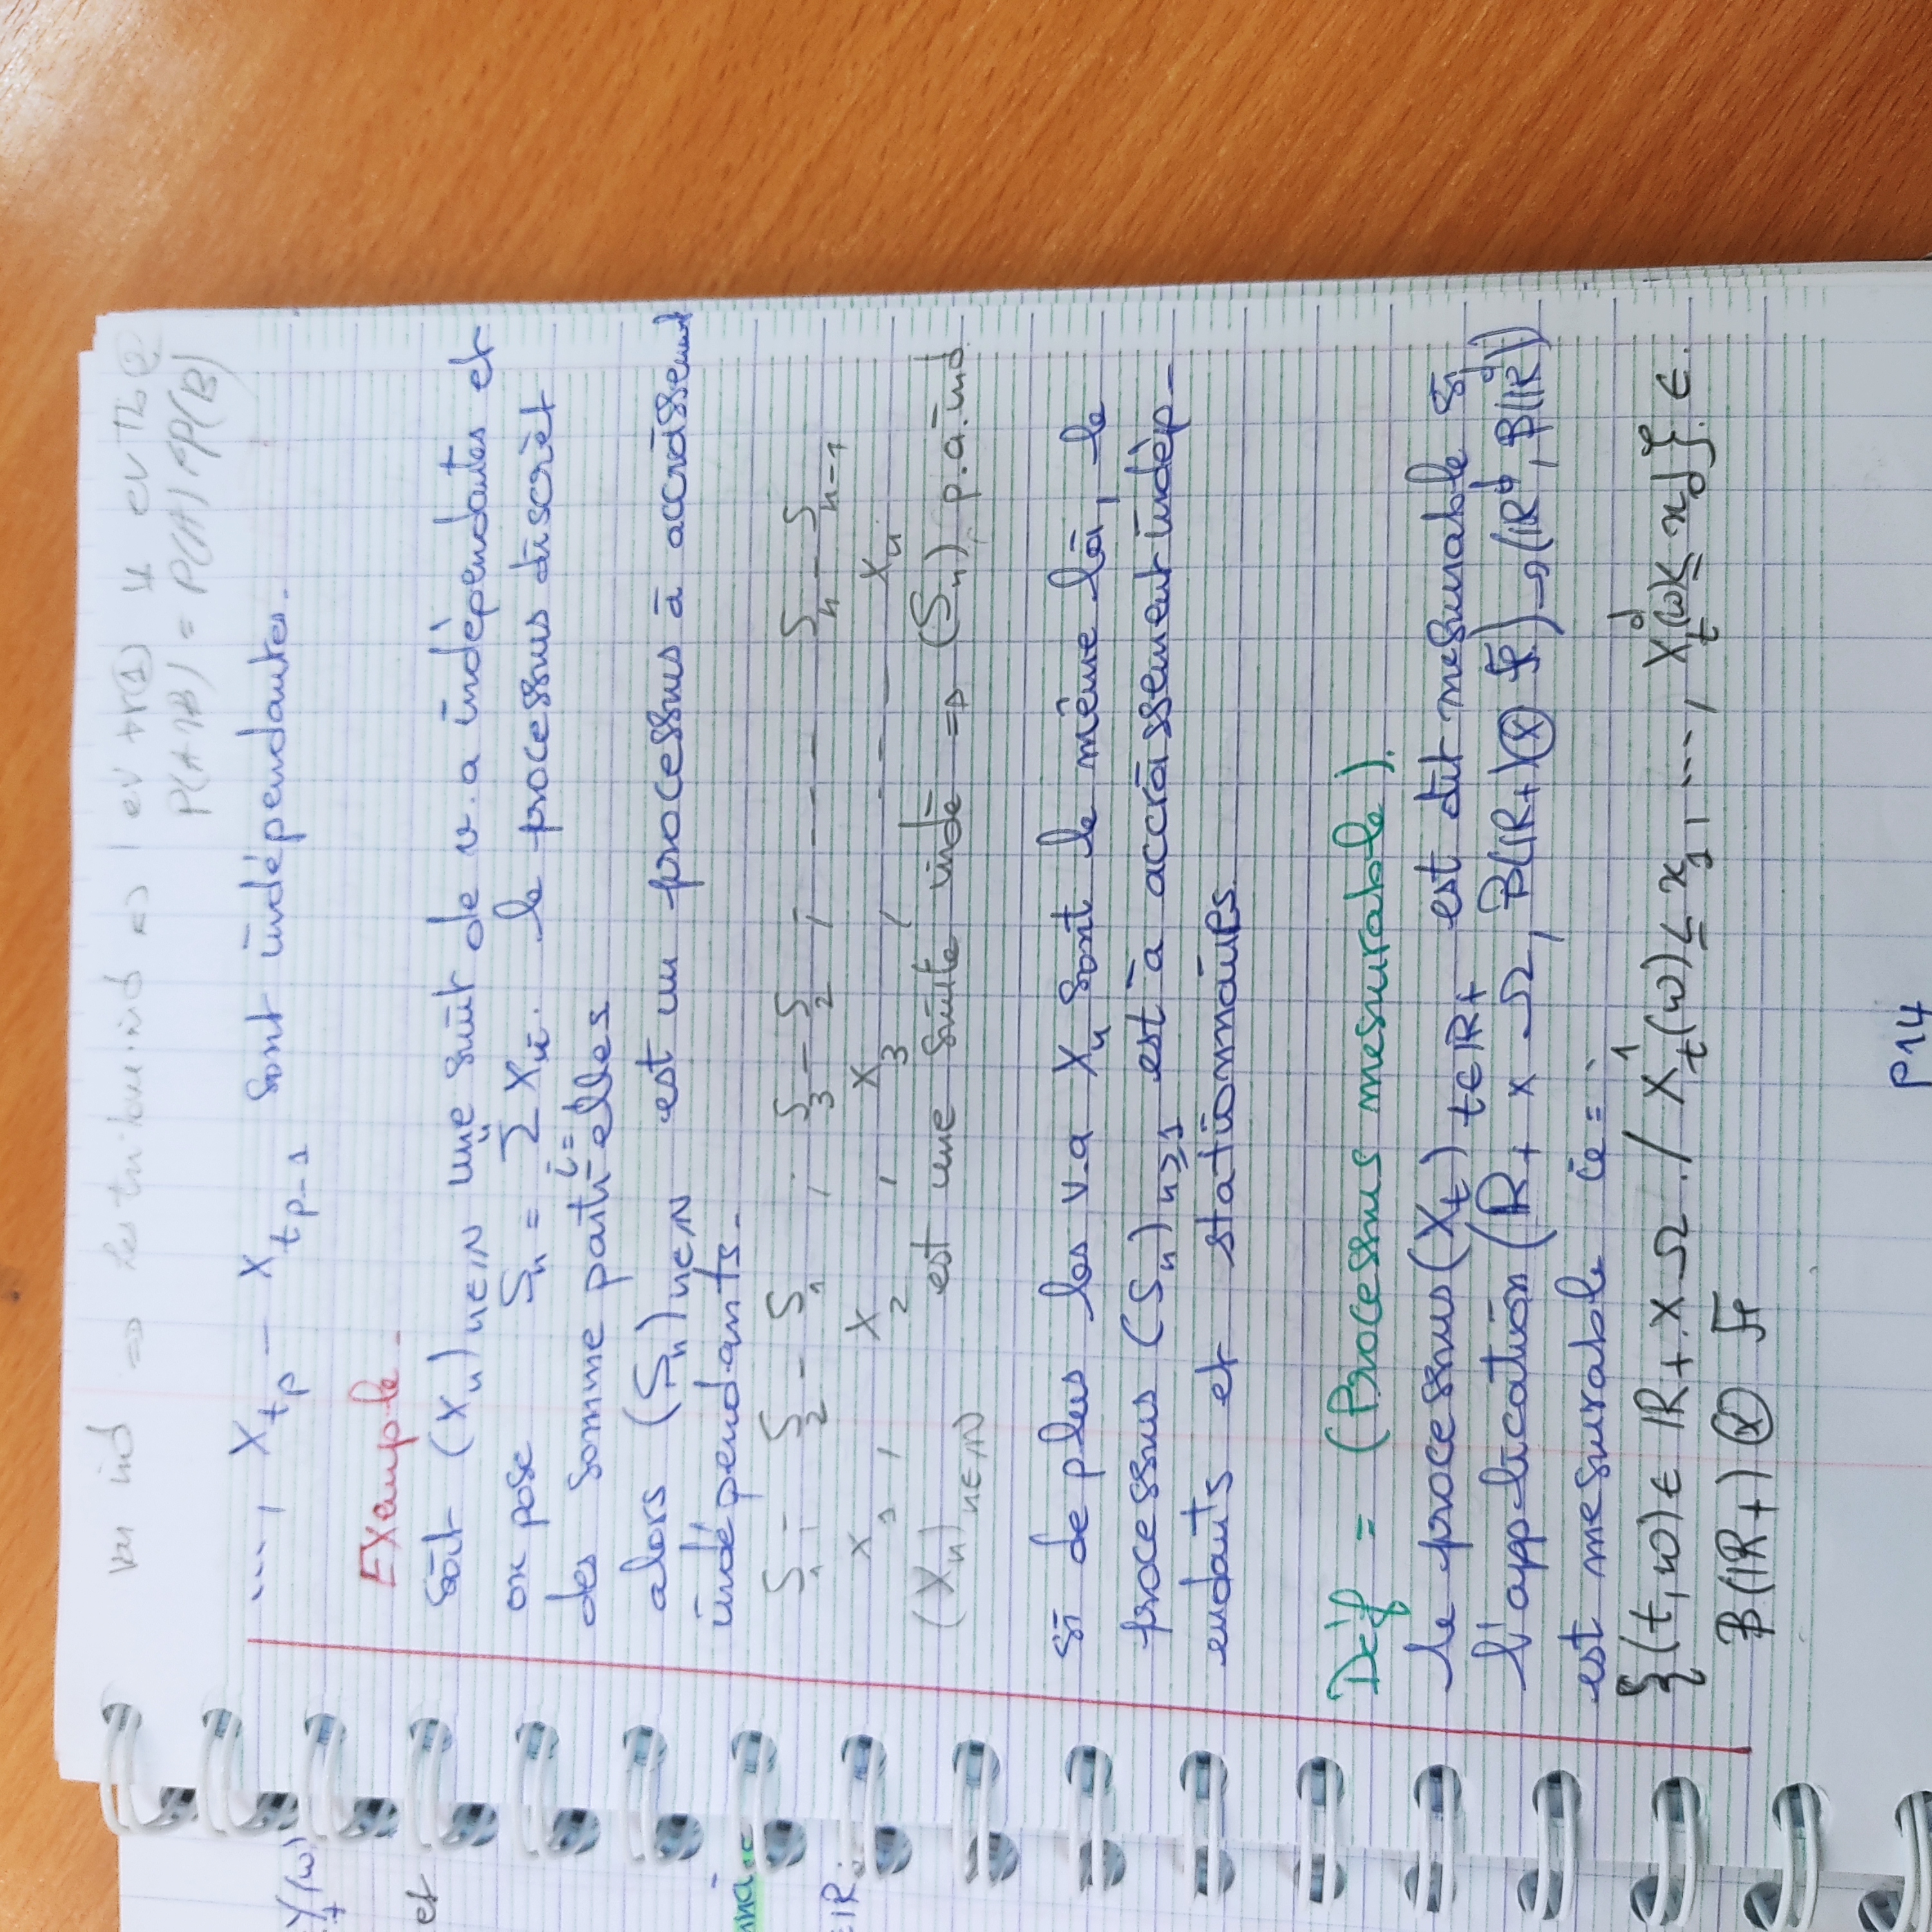 var ind => les tribue ind <=> 1 ev tr(1) ⊥ ev
P(A∩B) = P(A) × P(B)
..., X_{t_p} - X_{t_{p-1}} sont indépendantes.
Example -
Soit (X_n)_{n∈IN} une suit de v.a indépendantes et
on pose S_n = Σ_{i=1}^{n} X_i. le processus discrèt
des somme partielles
alors (S_n)_{n∈IN} est un processus à accroissement
indépendants.
S_1 ; S_2 - S_1 ; S_3 - S_2 ; - - - S_n - S_{n-1}
X_1 , X_2 , X_3 , - - - X_n
(X_n)_{n∈IN} est une suite indé => (S_n) p.a.ind
si de plus les v.a X_n sont le même loi, le
processus (S_n)_{n≥1} est à accroissement indép-
endants et stationnaires.
Déf = (Processus mesurable).
le processus (X_t)_{t∈IR+} est dit mesurable si
l'application (IR+ x Ω, B(IR+) ⊗ F) → (IR^d, B(IR^d))
est mesurable ie =
{(t,ω) ∈ IR+ x Ω / X_t^1(ω) ≤ x_1, ..., X_t^d(ω) ≤ x_d} ∈
B(IR+) ⊗ F
P14
Y_t(ω)
et
∈IR.